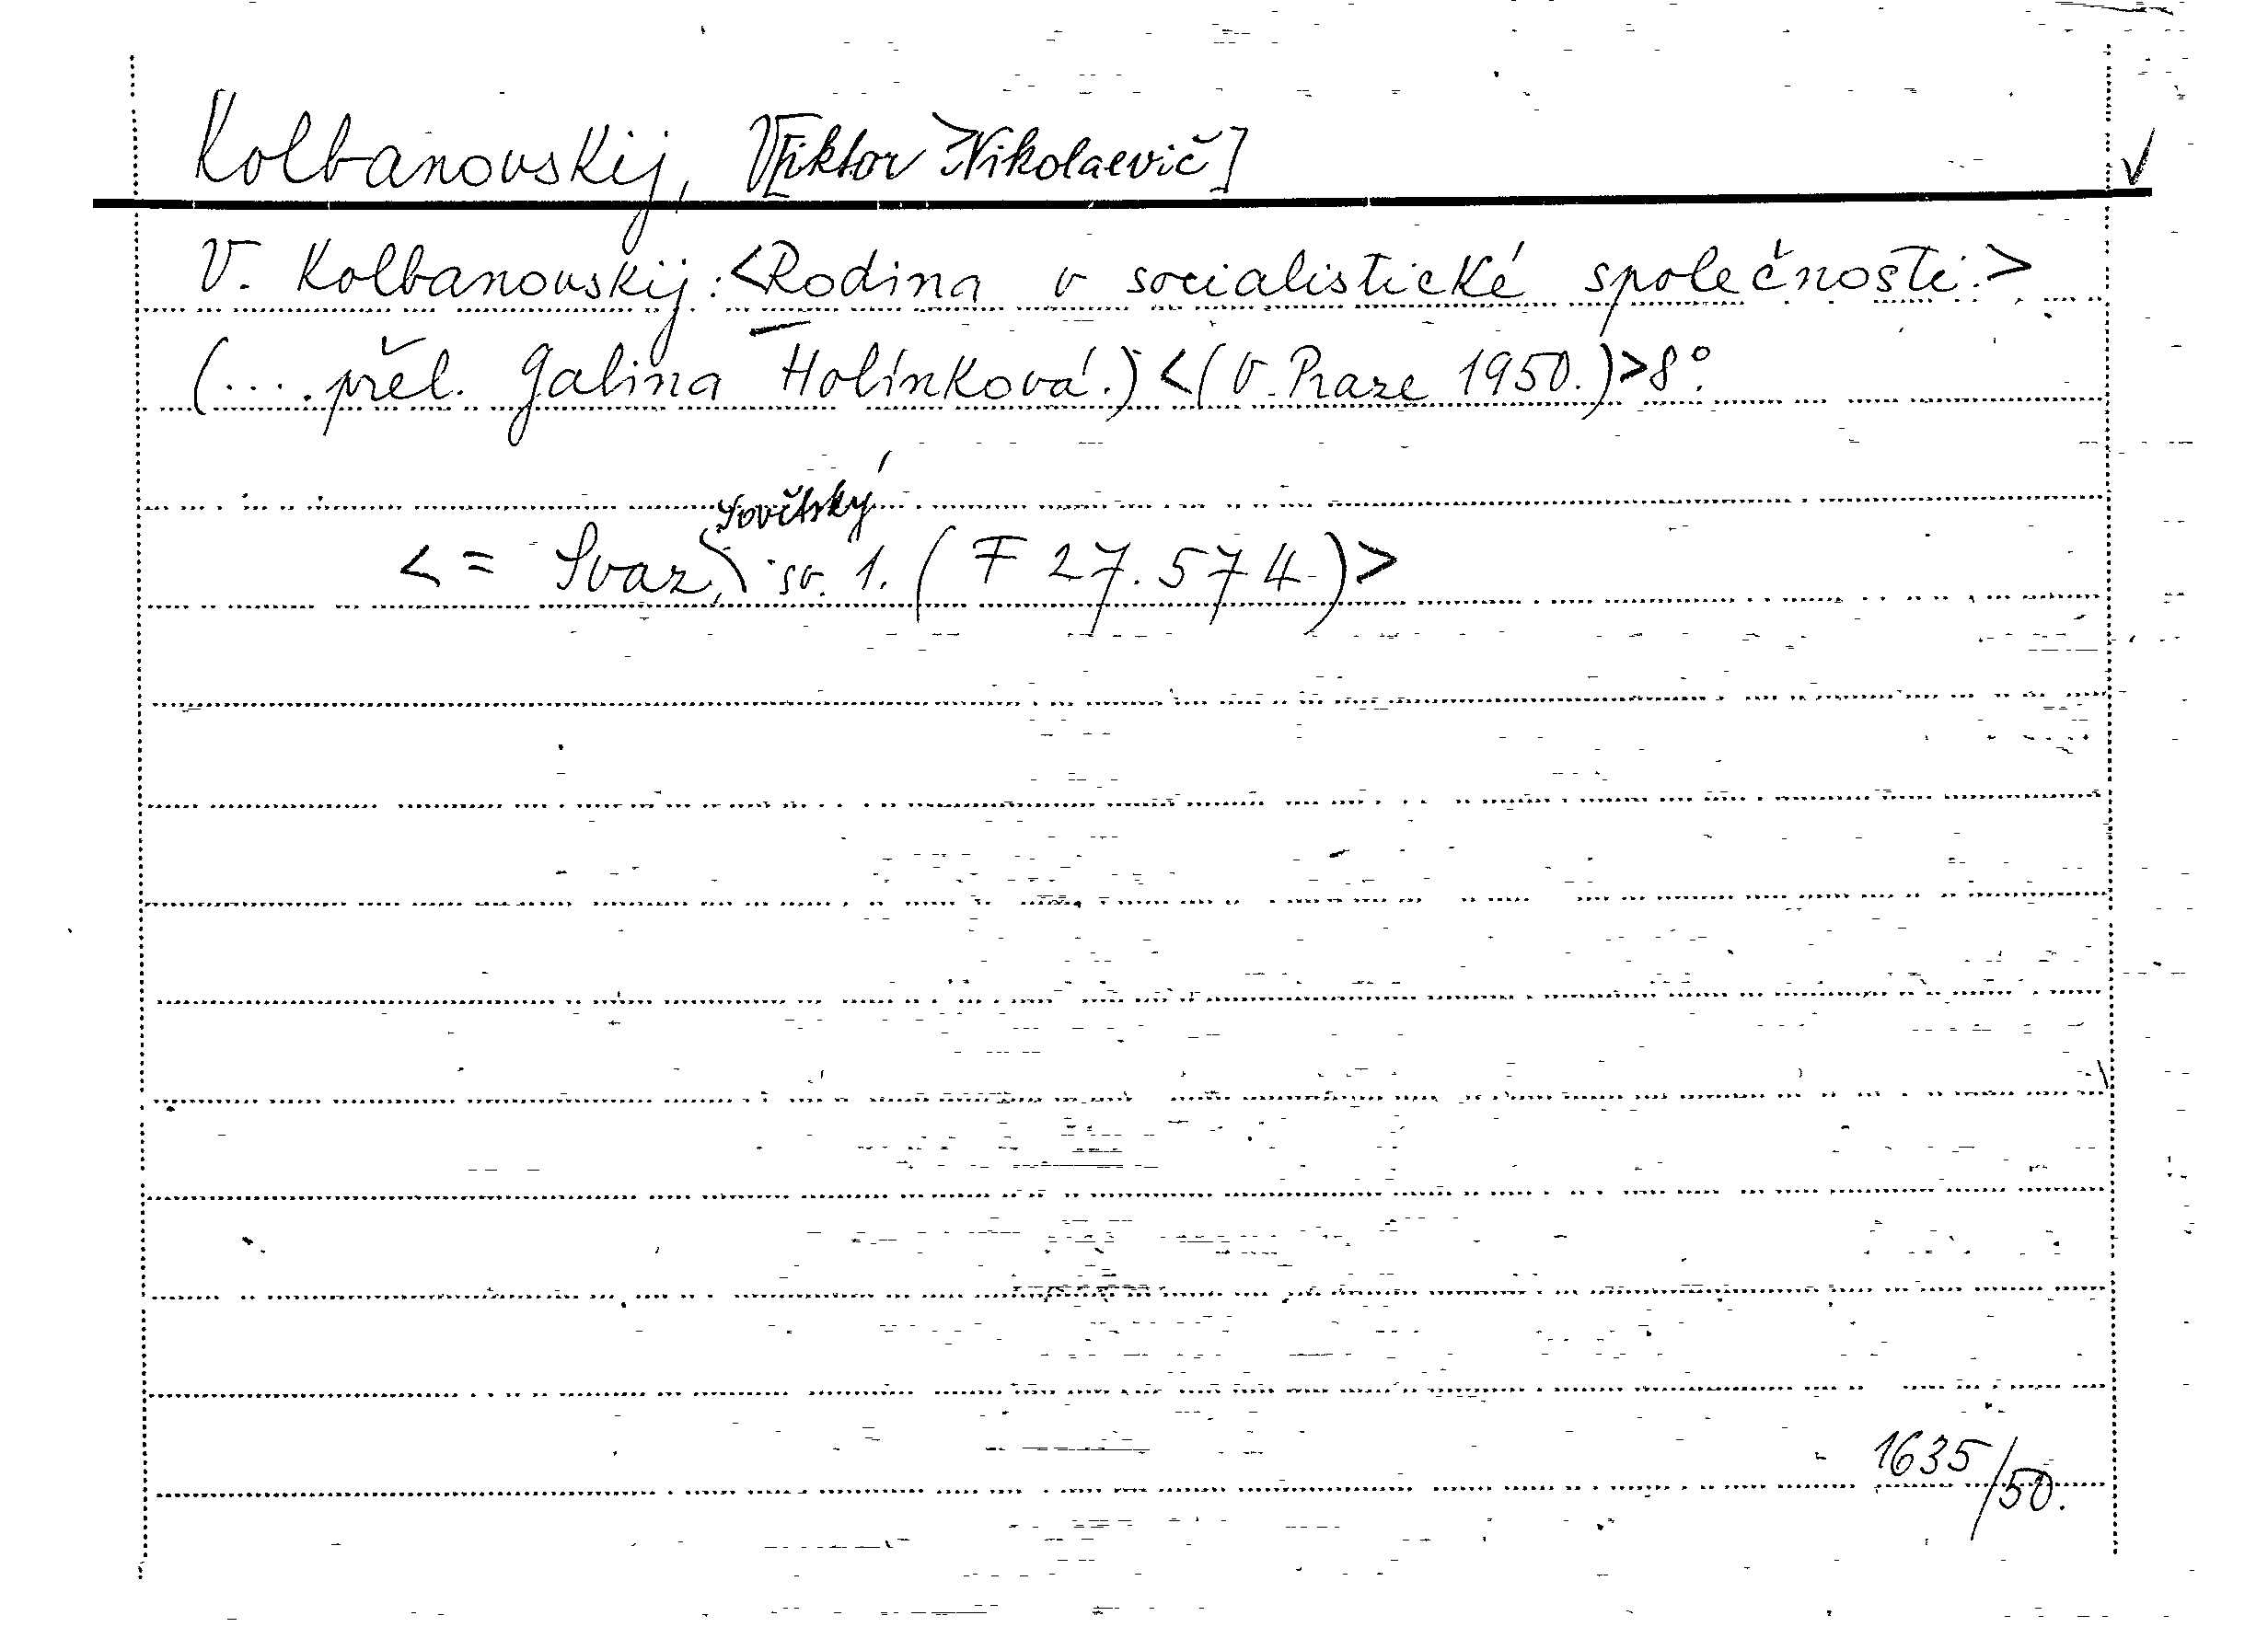 Kolbanovskij, V[iktor Nikolaevič]
V. Kolbanovskij: <Rodina v socialistické společnosti.>
(.... přel. Galina Holínková.) <(V Praze 1950.)> 8°.
Sovětský
< = Svaz, sv. 1. (F 27.574)>
1635/50.